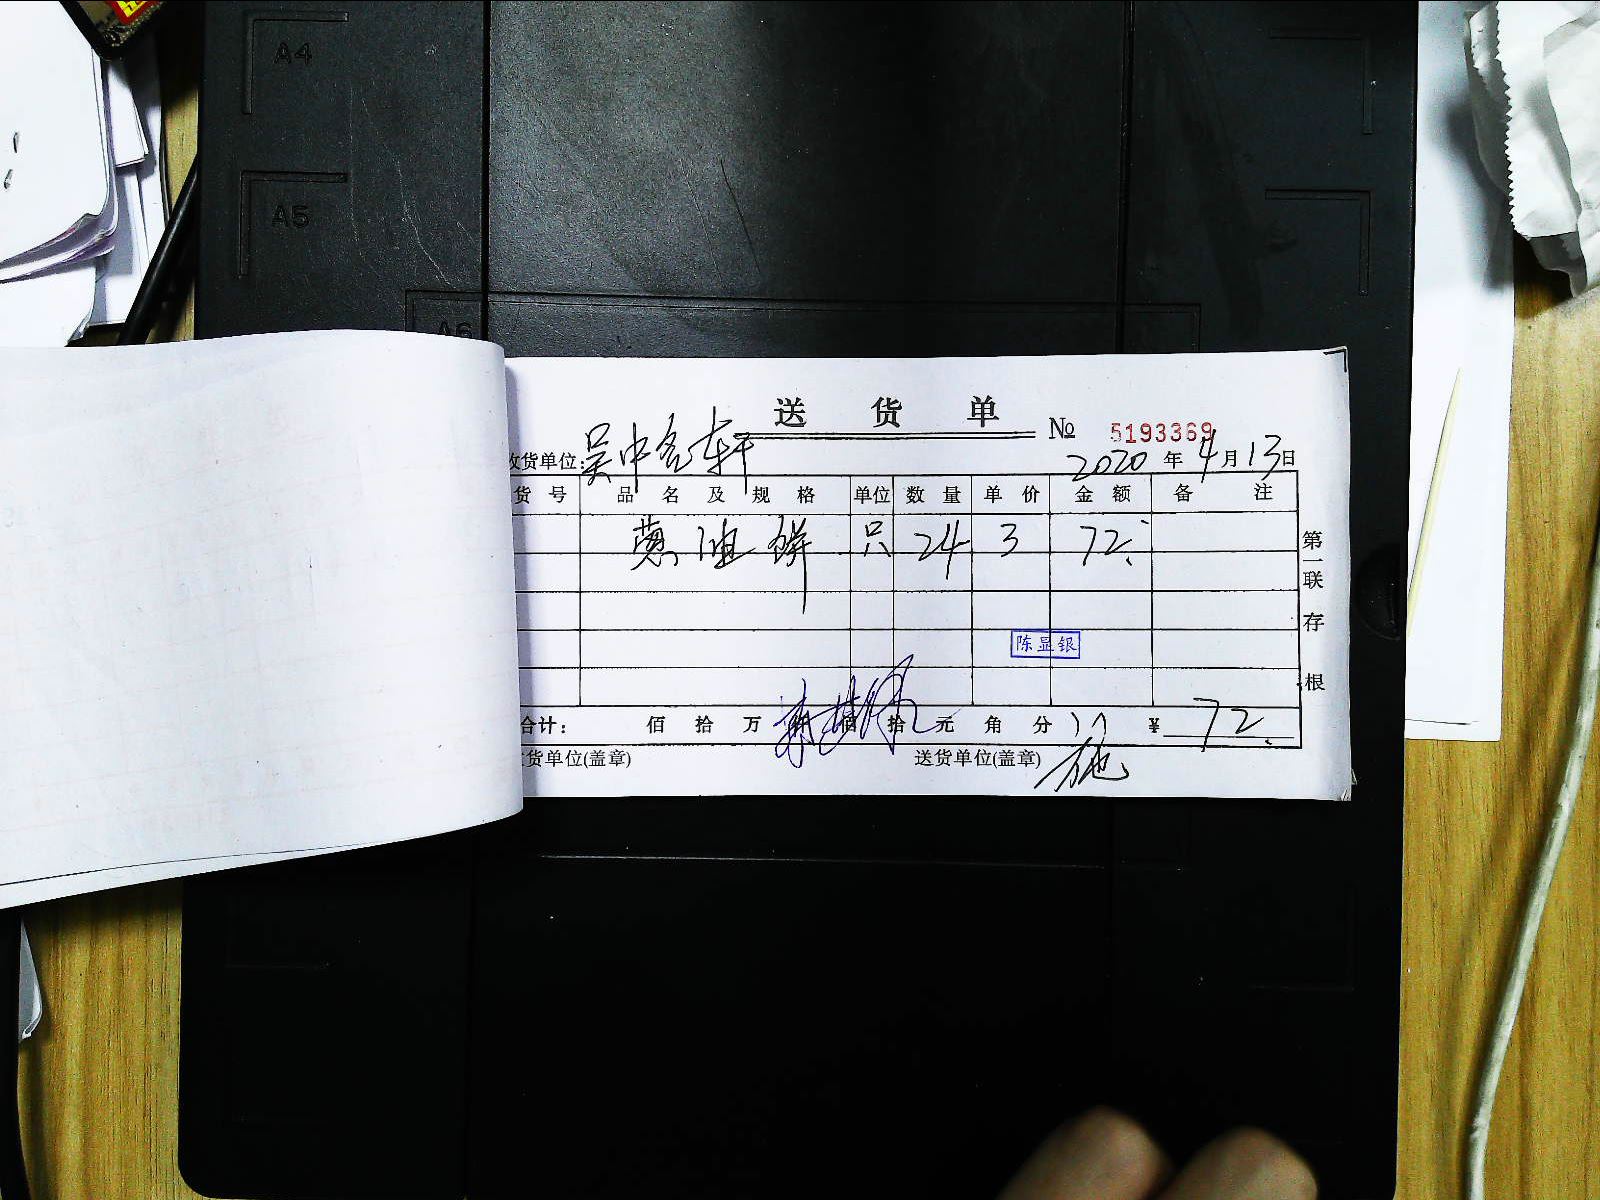 A4
A5
A6
送货单 № 5193369
收货单位：吴中客轩 2020年4月13日
货号 品名及规格 单位 数量 单价 金额 备注
葱油饼 只 24 3 72.
陈显银
合计： 佰 拾 万 佰 拾 元 角 分 ¥ 72.
货单位(盖章) 送货单位(盖章) 施
第一联 存根